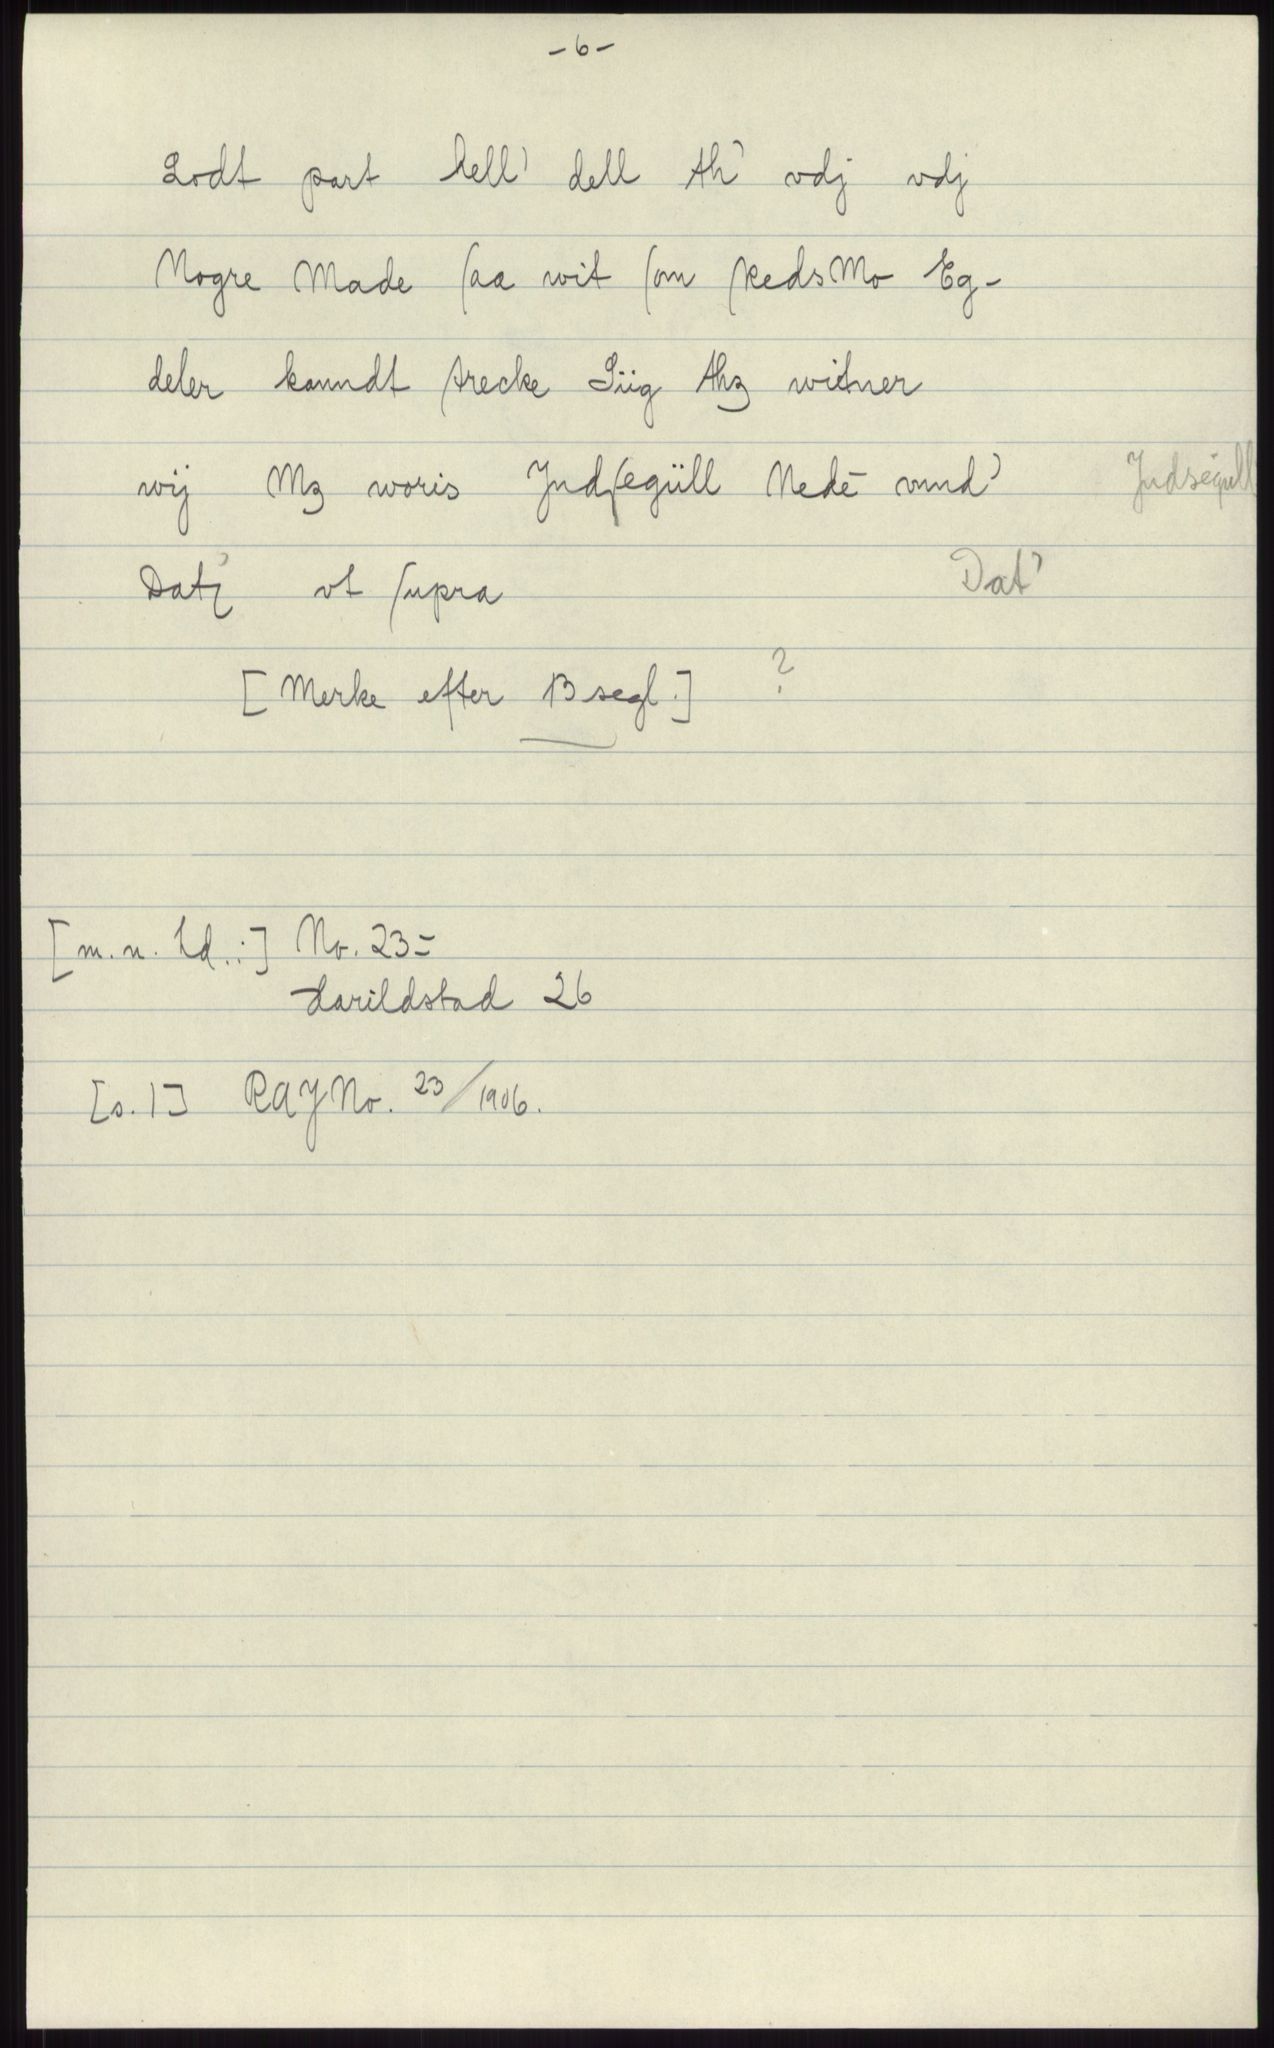 -6-
Lodt part hell' dell th' vdj vdj
Nogre Made saa wit som skedsMo Eg-
deler kanndt strecke Siig thz witner
wij Mz woris Jndsegüll Nedē vnnd' Jndségull
Datʒ vt supra Dat'
[Merke efter 13 segl.] ?
[m.n. hd.:] No. 23=
Harildstad 26
[s. 1] RAJNo. 23/1906.